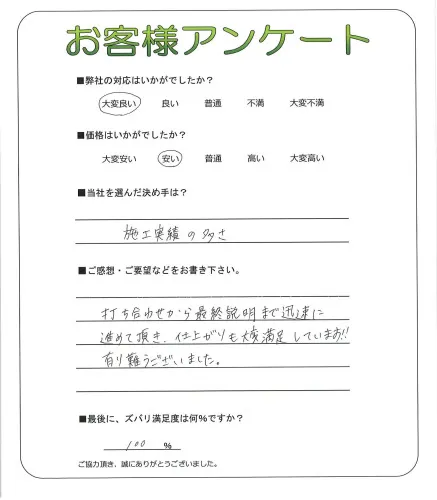 お客様アンケート
■弊社の対応はいかがでしたか？
大変良い 良い 普通 不満 大変不満
■価格はいかがでしたか？
大変安い 安い 普通 高い 大変高い
■当社を選んだ決め手は？
施工実績の多さ
■ご感想・ご要望などをお書き下さい。
打ち合わせから最終説明まで迅速に
進めて頂き、仕上がりも大変満足しています!!
有り難うございました。
■最後に、ズバリ満足度は何%ですか？
100 %
ご協力頂き、誠にありがとうございました。